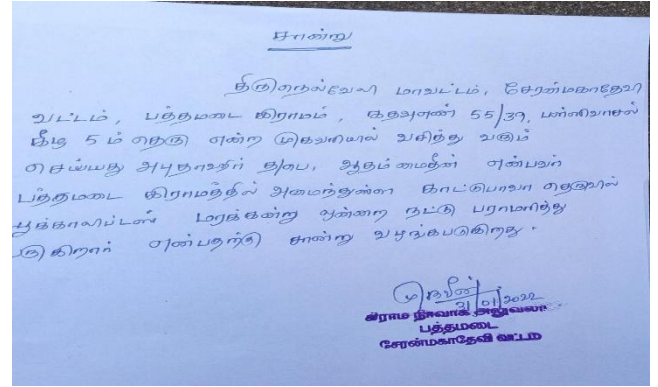 சான்று
திருநெல்வேலி மாவட்டம், சேரன்மகாதேவி
வட்டம், பத்தமடை கிராமம், கதவுஎண் 55/39, பள்ளிவாசல்
கீழ 5ம் தெரு என்ற முகவரியில் வசித்து வரும்
செய்யது அபுதாஹிர் த/பெ, ஆதம்மைதீன் என்பவர்
பத்தமடை கிராமத்தில் அமைந்துள்ள காட்டுபாவா தெருவில்
யூக்காலிப்டஸ் மரக்கன்று ஒன்றை நட்டு பராமரித்து
என்பதற்கு சான்று வழங்கபடுகிறது.
/01/2022
கிராம நிர்வாக அலுவலர்
பத்தமடை
சேரன்மகாதேவி வட்டம்